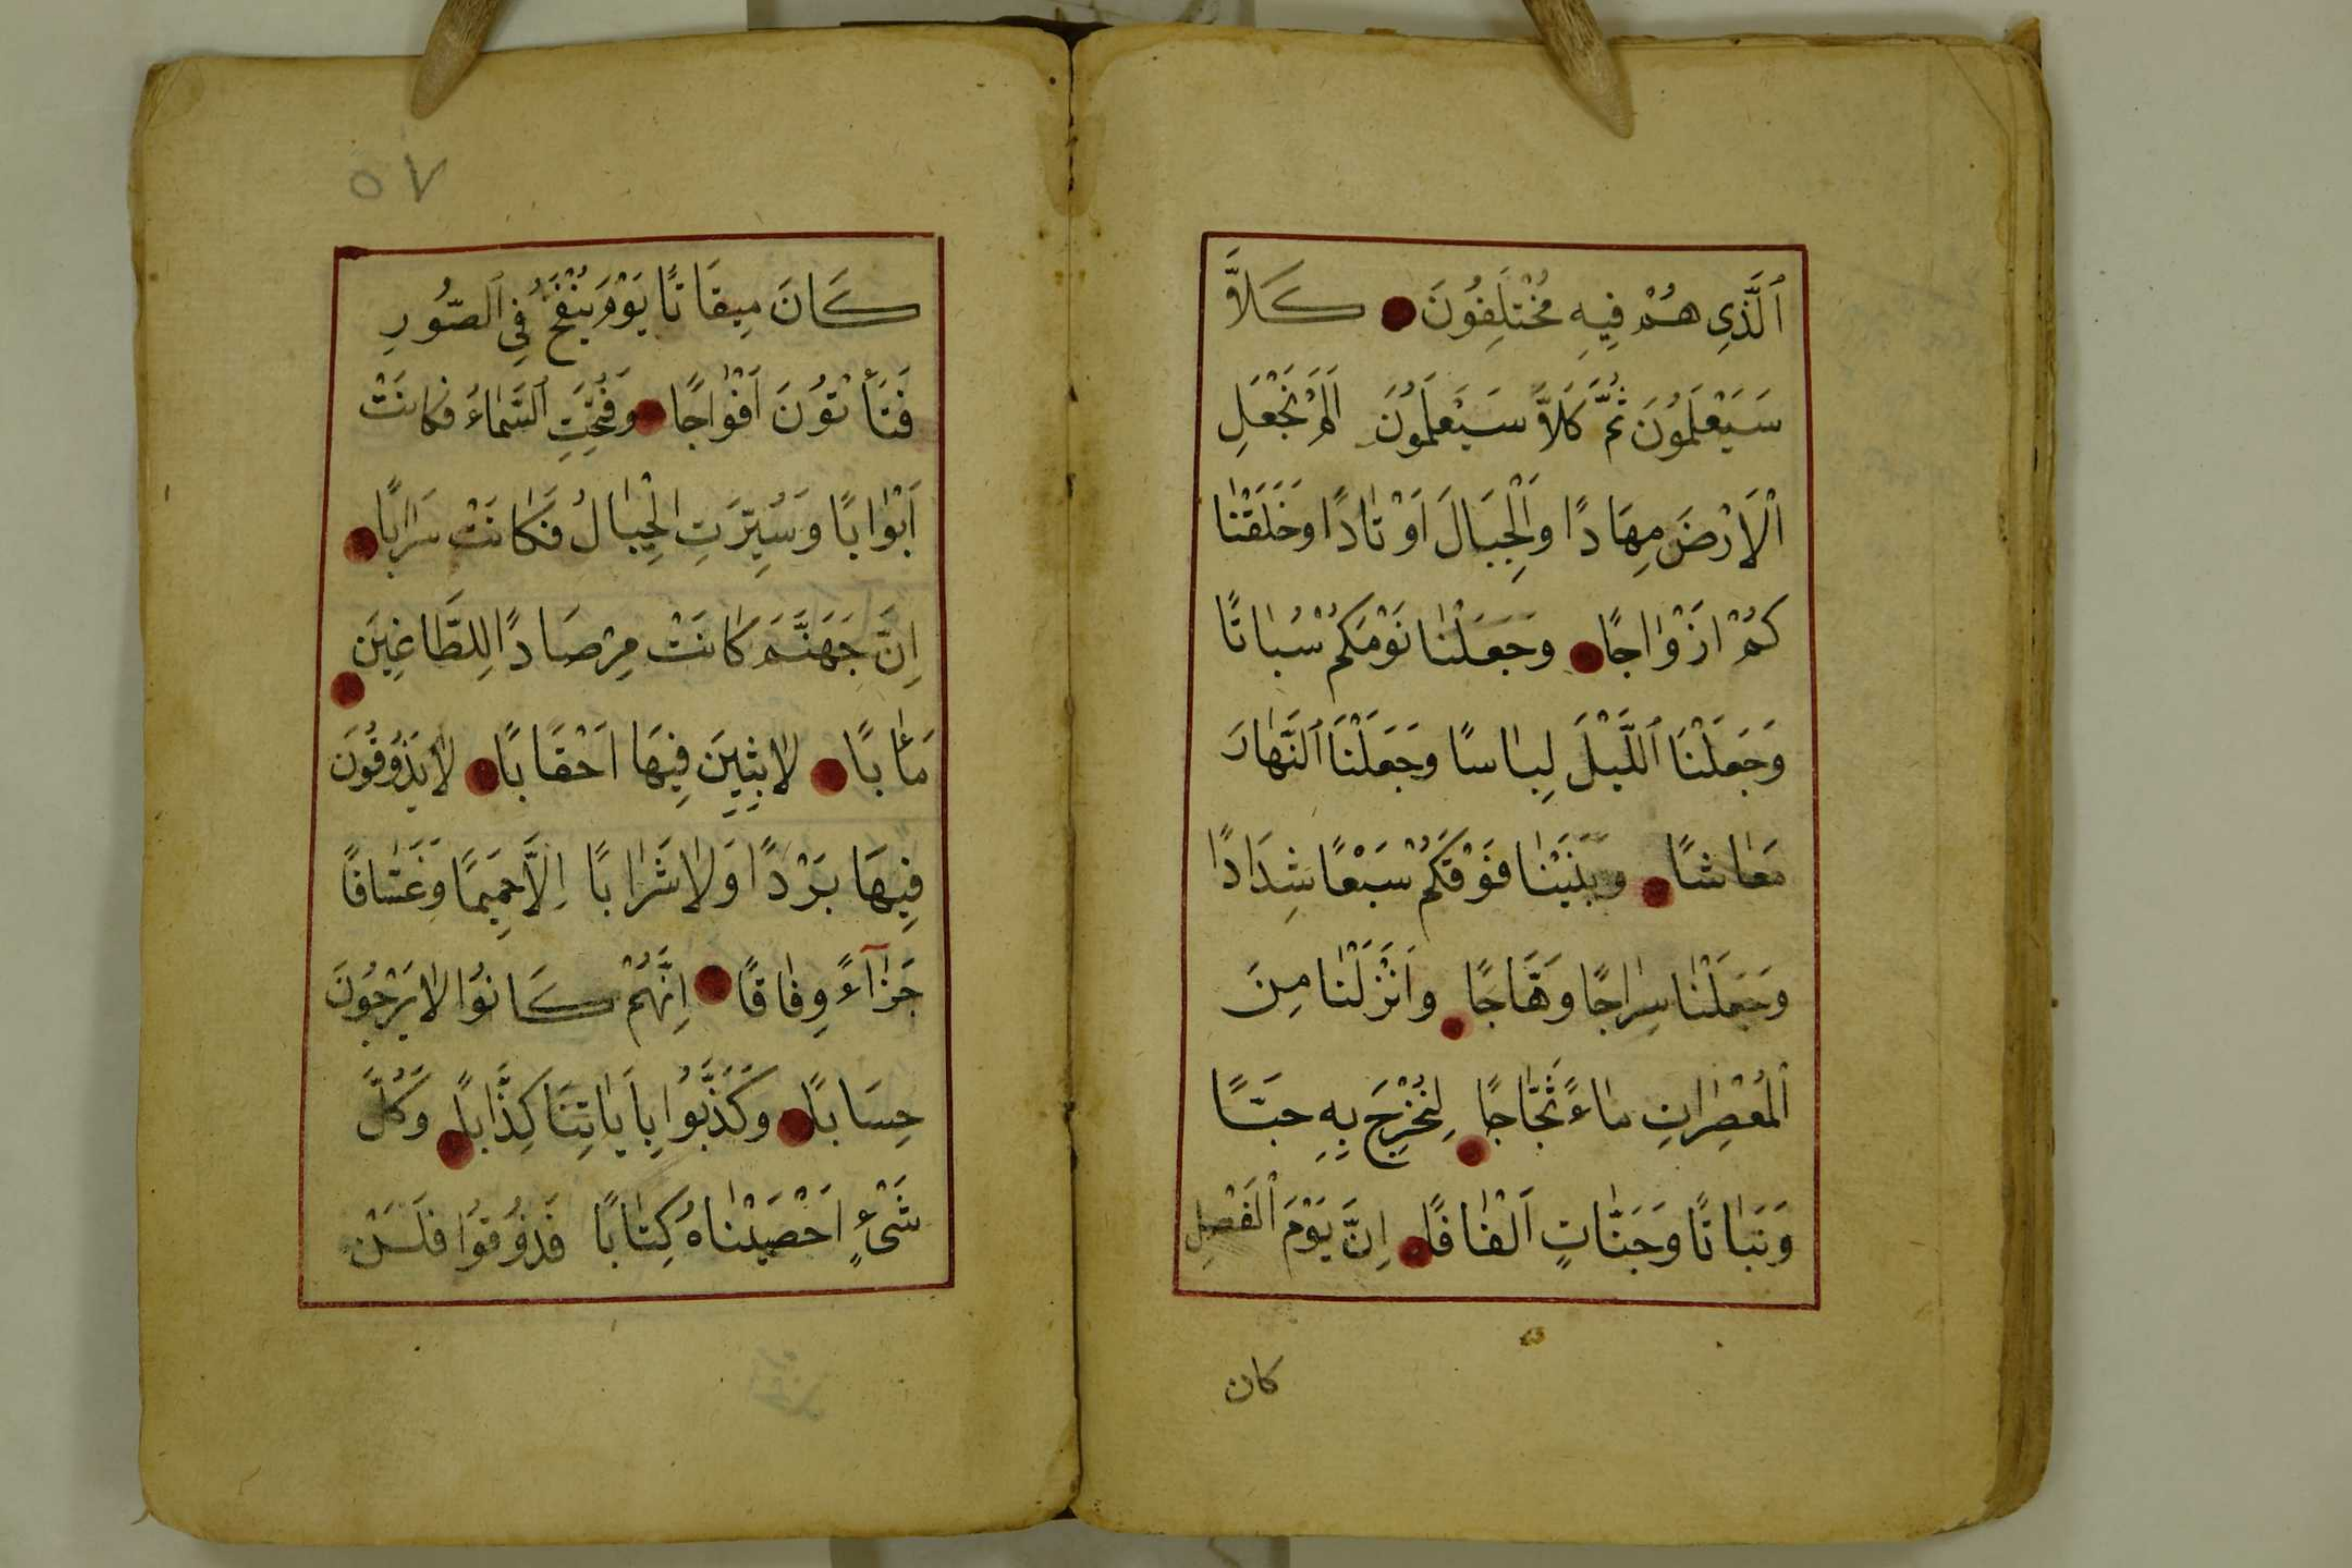 ٱلَّذِى هُمْ فِيهِ مُخْتَلِفُونَ كَلَّا
سَيَعْلَمُونَ ثُمَّ كَلَّا سَيَعْلَمُونَ اَلَمْ نَجْعَلِ
ٱلْاَرْضَ مِهَادًا وَالْجِبَالَ اَوْتَادًا وَخَلَقْنَا
كُمْ اَزْوَاجًا وَجَعَلْنَا نَوْمَكُمْ سُبَاتًا
وَجَعَلْنَا ٱللَّيْلَ لِبَاسًا وَجَعَلْنَا ٱلنَّهَارَ
مَعَاشًا وَبَنَيْنَا فَوْقَكُمْ سَبْعًا شِدَادًا
وَجَعَلْنَا سِرَاجًا وَهَّاجًا وَاَنْزَلْنَا مِنَ
ٱلْمُعْصِرَاتِ مَاءً ثَجَّاجًا لِنُخْرِجَ بِهِ حَبًّا
وَنَبَاتًا وَجَنَّاتٍ اَلْفَافًا اِنَّ يَوْمَ ٱلْفَصْلِ
كان
٥٧
كَانَ مِيقَاتًا يَوْمَ يُنْفَخُ فِى ٱلصُّورِ
فَتَأْتُونَ اَفْوَاجًا وَفُتِحَتِ ٱلسَّمَاءُ فَكَانَتْ
اَبْوَابًا وَسُيِّرَتِ الْجِبَالُ فَكَانَتْ سَرَابًا
اِنَّ جَهَنَّمَ كَانَتْ مِرْصَادًا لِلطَّاغِينَ
مَاٰبًا لَابِثِينَ فِيهَا اَحْقَابًا لَا يَذُوقُونَ
فِيهَا بَرْدًا وَلَا شَرَابًا اِلَّا حَمِيمًا وَغَسَّاقًا
جَزَآءً وِفَاقًا اِنَّهُمْ كَانُوا لَا يَرْجُونَ
حِسَابًا وَكَذَّبُوا بِاٰيَاتِنَا كِذَّابًا وَكُلَّ
شَىْءٍ اَحْصَيْنَاهُ كِتَابًا فَذُوقُوا فَلَنْ